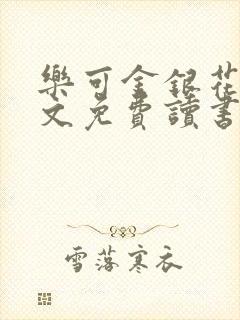 樂可金銀花
文免費讀書
雪落寒衣